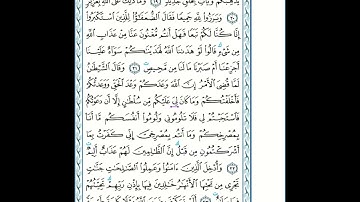 يُذْهِبْكُمْ وَيَأْتِ بِخَلْقٍ جَدِيدٍ ١٩ وَمَا ذَٰلِكَ عَلَى ٱللَّهِ بِعَزِيزٍ
٢٠ وَبَرَزُوا۟ لِلَّهِ جَمِيعًا فَقَالَ ٱلضُّعَفَٰٓؤُا۟ لِلَّذِينَ ٱسْتَكْبَرُوٓا۟
إِنَّا كُنَّا لَكُمْ تَبَعًا فَهَلْ أَنتُم مُّغْنُونَ عَنَّا مِنْ عَذَابِ ٱللَّهِ
مِن شَىْءٍ قَالُوا۟ لَوْ هَدَىٰنَا ٱللَّهُ لَهَدَيْنَٰكُمْ سَوَآءٌ عَلَيْنَآ
أَجَزِعْنَآ أَمْ صَبَرْنَا مَا لَنَا مِن مَّحِيصٍ ٢١ وَقَالَ ٱلشَّيْطَٰنُ
لَمَّا قُضِىَ ٱلْأَمْرُ إِنَّ ٱللَّهَ وَعَدَكُمْ وَعْدَ ٱلْحَقِّ وَوَعَدتُّكُمْ
فَأَخْلَفْتُكُمْ وَمَا كَانَ لِىَ عَلَيْكُم مِّن سُلْطَٰنٍ إِلَّآ أَن دَعَوْتُكُمْ
فَٱسْتَجَبْتُمْ لِى فَلَا تَلُومُونِى وَلُومُوٓا۟ أَنفُسَكُم مَّآ أَنَا۠
بِمُصْرِخِكُمْ وَمَآ أَنتُم بِمُصْرِخِىَّ إِنِّى كَفَرْتُ بِمَآ
أَشْرَكْتُمُونِ مِن قَبْلُ إِنَّ ٱلظَّٰلِمِينَ لَهُمْ عَذَابٌ أَلِيمٌ
٢٢ وَأُدْخِلَ ٱلَّذِينَ ءَامَنُوا۟ وَعَمِلُوا۟ ٱلصَّٰلِحَٰتِ جَنَّٰتٍ
تَجْرِى مِن تَحْتِهَا ٱلْأَنْهَٰرُ خَٰلِدِينَ فِيهَا بِإِذْنِ رَبِّهِمْ تَحِيَّتُهُمْ